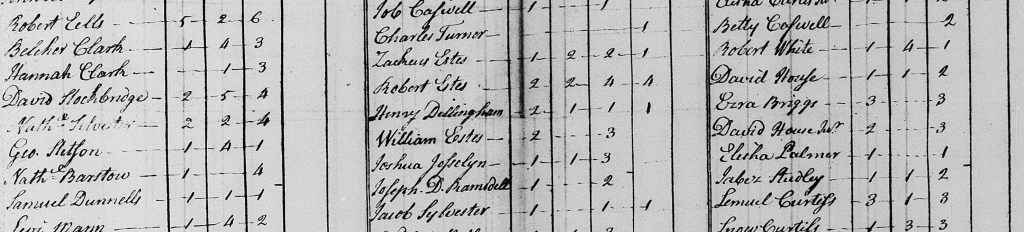 Robert Eells — 5 — 2 — 6
Belcher Clark — 1 — 4 — 3
Hannah Clark — 1 — 3
David Stockbridge — 2 — 5 — 4
Nathl Silvester — 2 2 — 4
Geo. Stetson — 1 — 4 — 1
Nathl Barstow — 1 — 4
Samuel Dunnells — 1 — 1 — 1
Levi Mann — 1 — 4 — 2
Job Caswell — 1 — 1 — 1
Charles Turner — 1
Zacheus Estes — 1 — 2 — 2 — 1
Robert Estes — 2 — 2 — 4 — 4
Henry Dellingham — 2 — 1 — 1 1
William Estes — 2 — 3
Joshua Josselyn — 1 — 1 — 3
Joseph D. Ramsdell — 1 — 2
Jacob Sylvester — 1 — 1 — 1 — 1
Betty Caswell — 2
Robert White — 1 — 4 — 1
David House — 1 — 1 — 2
Ezra Briggs — 3 — 3
David House Junr — 2 — 3
Elisha Palmer — 1 — 1
Jabez Studley — 1 — 1 2
Lemuel Curtiss — 3 — 1 — 3
Snow Curtiss — 1 — 3 — 3